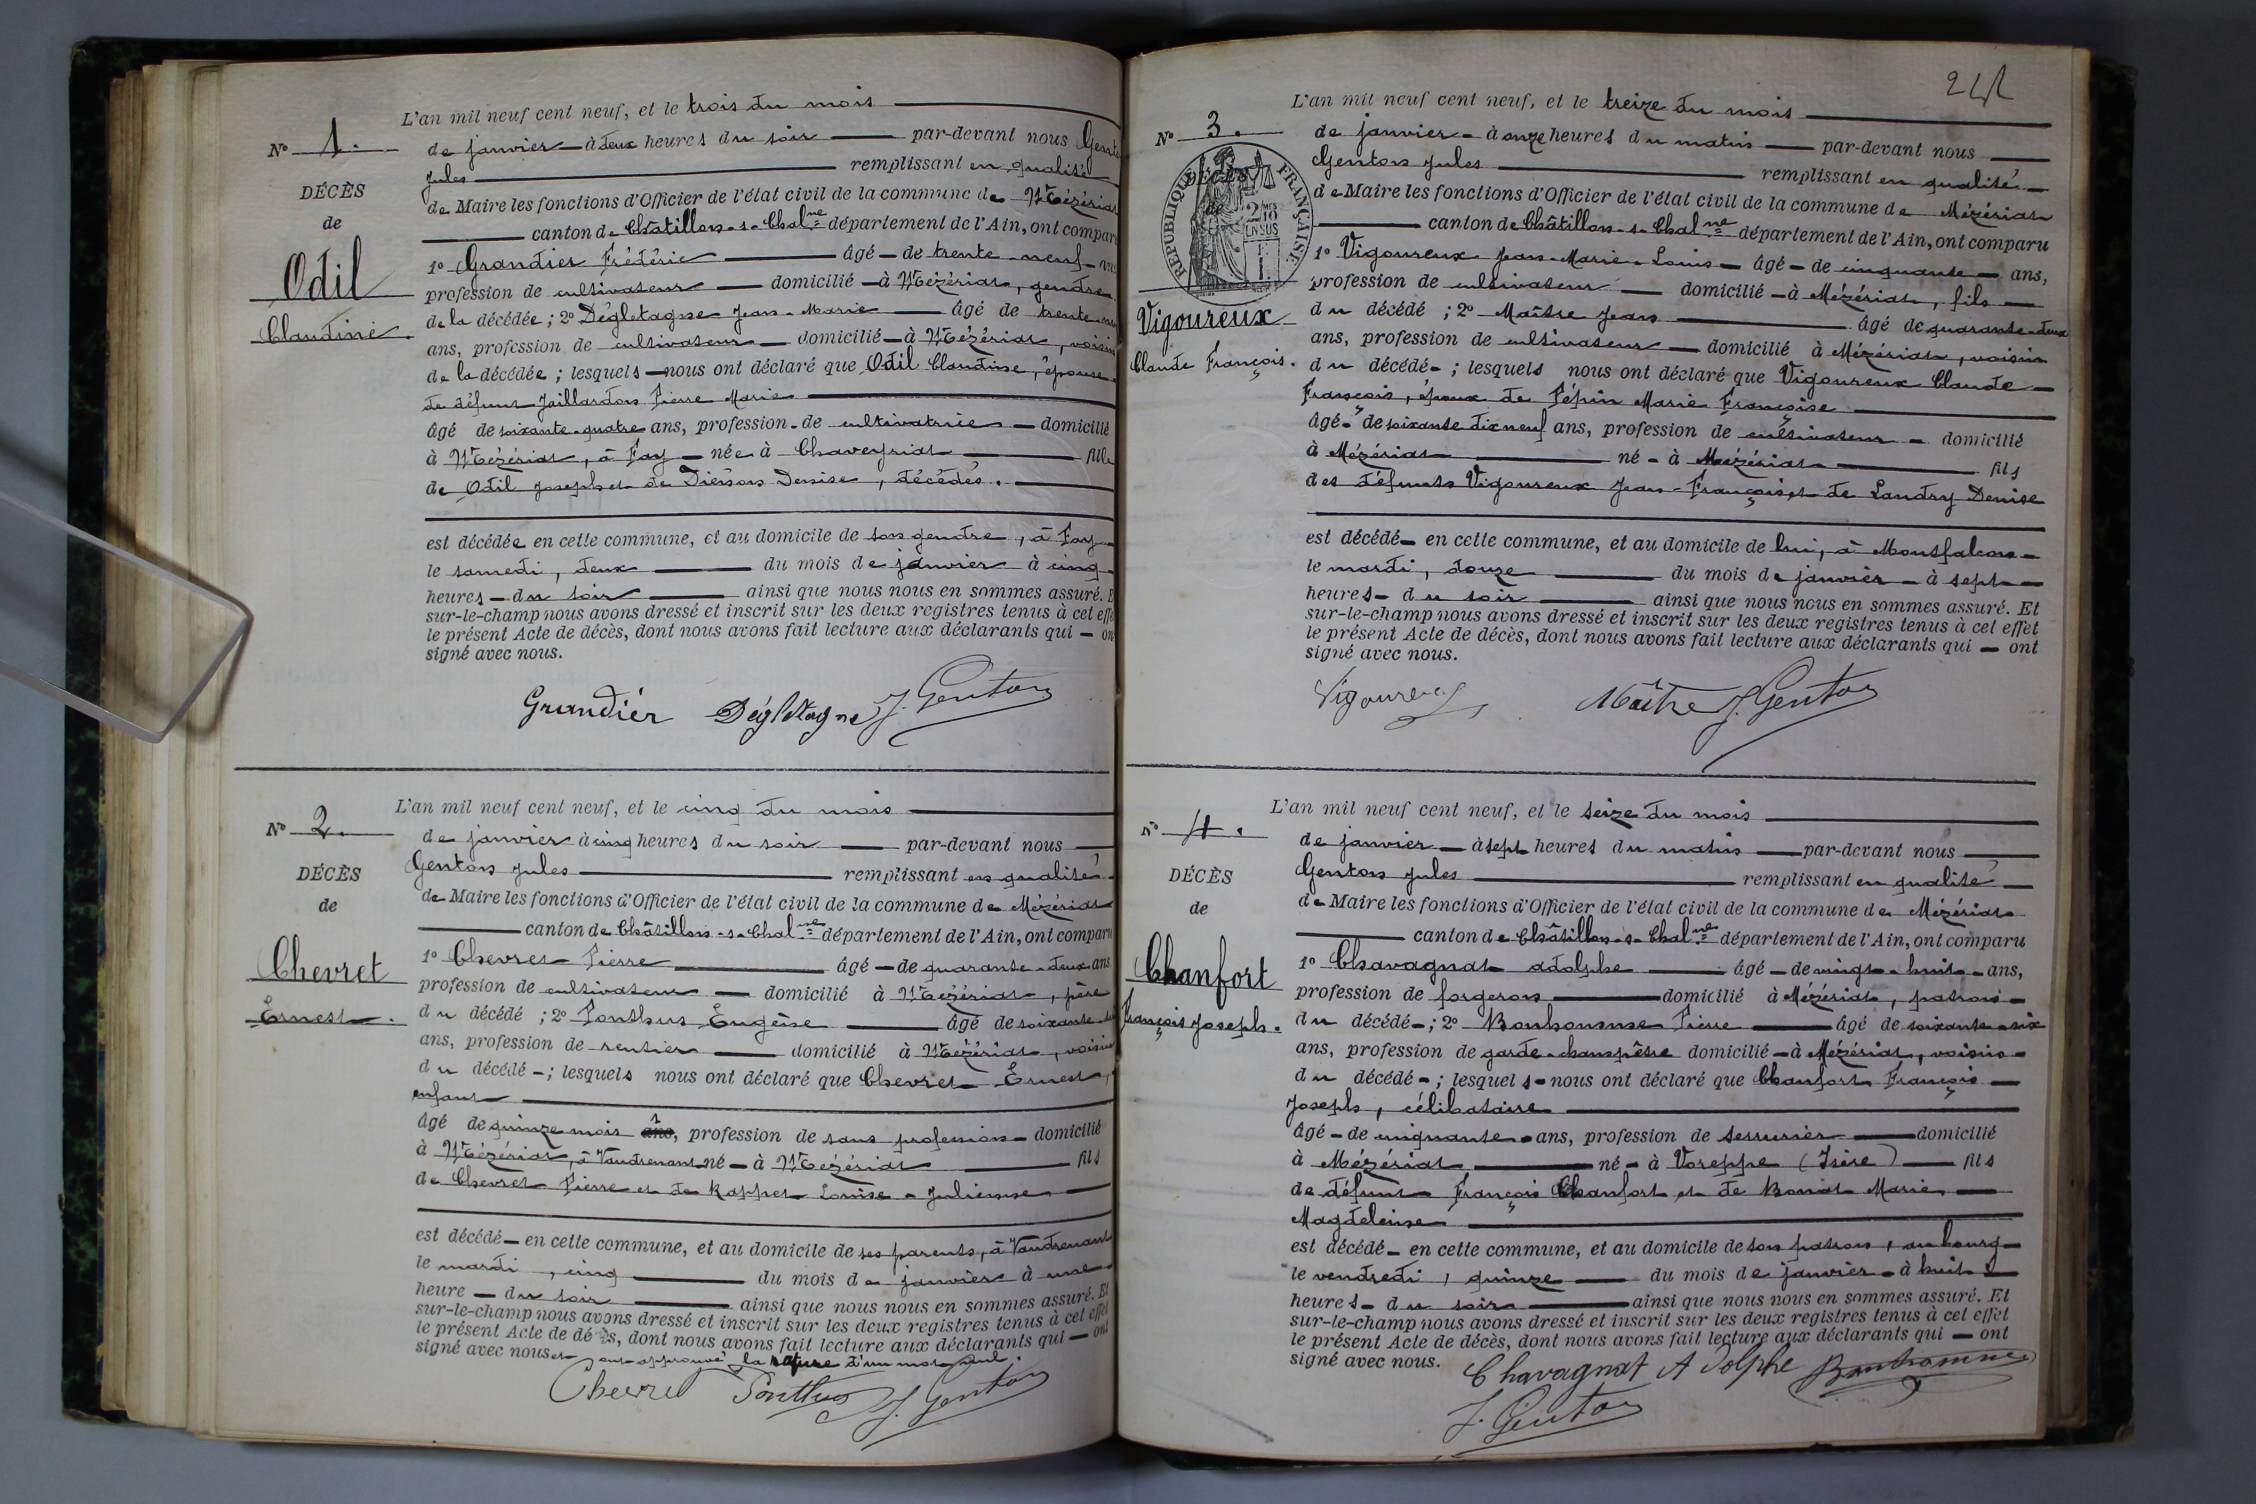 N° 1.
DÉCÈS
de
Odil
Claudine.
L'an mil neuf cent neuf, et le trois du mois
de janvier à deux heures du soir par-devant nous
Jules remplissant en qualité
de Maire les fonctions d'Officier de l'état civil de la commune de Mézériat
canton de Châtillon-s-Chalne département de l'Ain, ont compar
1° Grandier Frédéric âgé de trente-neuf
profession de cultivateur domicilié à Mézériat, gendre
de la décédée ; 2° Dégletagne Jean-Marie âgé de trente
ans, profession de cultivateur domicilié à Mézériat, voisin
de la décédée ; lesquels nous ont déclaré que Odil Claudine, épouse
de défunt Jaillardon Pierre Marie
âgé de soixante-quatre ans, profession de cultivatrice domicilié
à Mézériat, à Fay née à Chaveyriat fille
de Odil Joseph et de Diénon Denise, décédés.
est décédée en cette commune, et au domicile de son gendre, à Fay
le samedi, deux du mois de janvier à cinq
heures du soir ainsi que nous nous en sommes assuré. E
sur-le-champ nous avons dressé et inscrit sur les deux registres tenus à cet effe
le présent Acte de décès, dont nous avons fait lecture aux déclarants qui on
signé avec nous.
Grandier Dégletagne J. Genton
N° 2.
DÉCÈS
de
Chevret
Ernest.
L'an mil neuf cent neuf, et le cinq du mois
de janvier à cinq heures du soir par-devant nous
Genton Jules remplissant en qualité
de Maire les fonctions d'Officier de l'état civil de la commune de Mézériat
canton de Châtillon-s-Chalne département de l'Ain, ont comparu
1° Chevret Pierre âgé de quarante-deux ans
profession de cultivateur domicilié à Mézériat, père
du décédé ; 2° Ponthus Eugène âgé de soixante
ans, profession de rentier domicilié à Mézériat, voisin
du décédé ; lesquels nous ont déclaré que Chevret Ernest,
enfant
âgé de quinze mois ans, profession de sans profession domicilié
à Mézériat, à Vaudrenant né à Mézériat fils
de Chevret Pierre et de Rappet Louise-Julienne
est décédé en cette commune, et au domicile de ses parents, à Vaudrenant
le mardi, cinq du mois de janvier à une
heure du soir ainsi que nous nous en sommes assuré. Et
sur-le-champ nous avons dressé et inscrit sur les deux registres tenus à cet effet
le présent Acte de décès, dont nous avons fait lecture aux déclarants qui ont
signé avec nous et ont approuvé la rature d'un mot nul.
Chevret Ponthus J. Genton
N° 3.
DÉCÈS
de
RÉPUBLIQUE FRANÇAISE
2/10 EN SUS
Vigoureux
Claude François.
L'an mil neuf cent neuf, et le treize du mois
de janvier à onze heures du matin par-devant nous
Genton Jules remplissant en qualité
de Maire les fonctions d'Officier de l'état civil de la commune de Mézériat
canton de Châtillon-s-Chalne département de l'Ain, ont comparu
1° Vigoureux Jean-Marie-Louis âgé de cinquante ans,
profession de cultivateur domicilié à Mézériat, fils
du décédé ; 2° Maître Jean âgé de quarante-deux
ans, profession de cultivateur domicilié à Mézériat, voisin
du décédé ; lesquels nous ont déclaré que Vigoureux Claude
François, époux de Pépin Marie Françoise
âgé de soixante dix neuf ans, profession de cultivateur domicilié
à Mézériat né à Mézériat fils
des défunts Vigoureux Jean-François et de Landry Denise
est décédé en cette commune, et au domicile de lui, à Montfalcon
le mardi, douze du mois de janvier à sept
heures du soir ainsi que nous nous en sommes assuré. Et
sur-le-champ nous avons dressé et inscrit sur les deux registres tenus à cet effet
le présent Acte de décès, dont nous avons fait lecture aux déclarants qui ont
signé avec nous.
Vigoureux Maître J. Genton
N° 4.
DÉCÈS
de
Chanfort
François Joseph.
L'an mil neuf cent neuf, et le seize du mois
de janvier à sept heures du matin par-devant nous
Genton Jules remplissant en qualité
de Maire les fonctions d'Officier de l'état civil de la commune de Mézériat
canton de Châtillon-s-Chalne département de l'Ain, ont comparu
1° Chavagnat Adolphe âgé de vingt-huit ans,
profession de forgeron domicilié à Mézériat, patron
du décédé ; 2° Bonhomme Pierre âgé de soixante-six
ans, profession de garde-champêtre domicilié à Mézériat, voisin
du décédé ; lesquels nous ont déclaré que Chanfort François
Joseph, célibataire
âgé de cinquante ans, profession de serrurier domicilié
à Mézériat né à Voreppe (Isère) fils
de défunt François Chanfort et de Bonnat Marie
Magdeleine
est décédé en cette commune, et au domicile de son patron, au bourg
le vendredi, quinze du mois de janvier à huit
heures du soir ainsi que nous nous en sommes assuré. Et
sur-le-champ nous avons dressé et inscrit sur les deux registres tenus à cet effet
le présent Acte de décès, dont nous avons fait lecture aux déclarants qui ont
signé avec nous. Chavagnat Adolphe Bonhomme
J. Genton